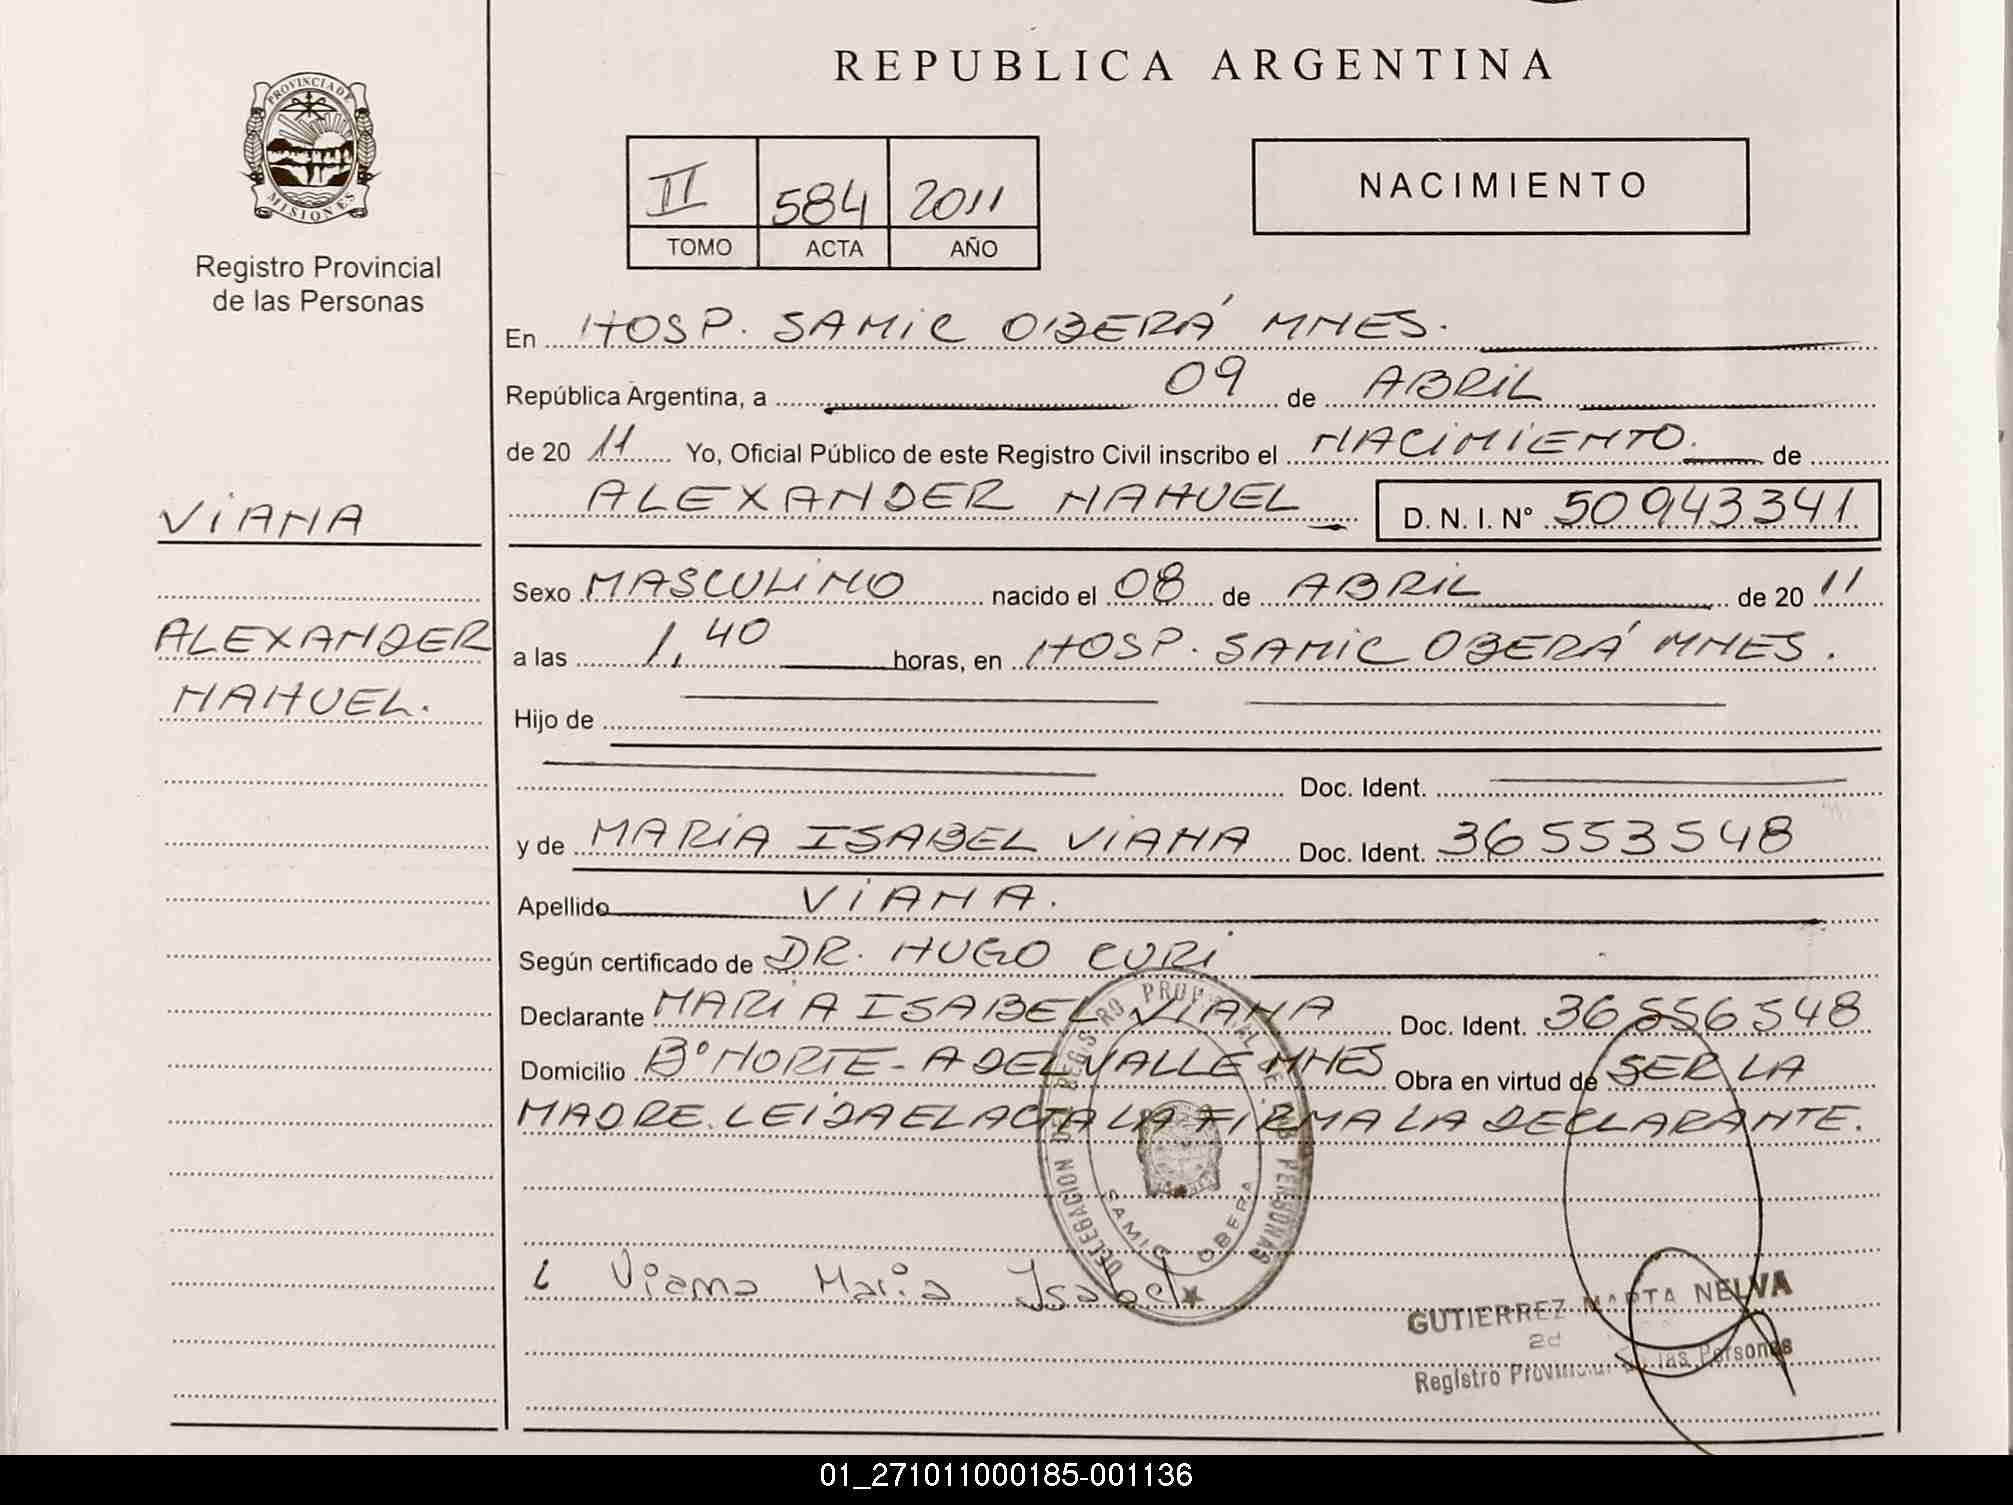 REPUBLICA ARGENTINA
PROVINCIA DE
MISIONES
Registro Provincial
de las Personas
II 584 2011
TOMO ACTA AÑO
NACIMIENTO
En HOSP. SAMIC OBERÁ MNES.
República Argentina, a 09 de ABRIL
de 20 11 Yo, Oficial Público de este Registro Civil inscribo el NACIMIENTO. de
ALEXANDER NAHUEL D. N. I. N° 50943341
VIANA
ALEXANDER
NAHUEL.
Sexo MASCULINO nacido el 08 de ABRIL de 20 11
a las 1,40 horas, en HOSP. SAMIC OBERÁ MNES.
Hijo de
Doc. Ident.
y de MARIA ISABEL VIANA Doc. Ident. 36553548
Apellido VIANA.
Según certificado de DR. HUGO CURI
Declarante MARIA ISABEL VIANA Doc. Ident. 36556548
Domicilio B° NORTE - A DEL VALLE MNES Obra en virtud de SER LA
MADRE. LEIDA EL ACTA LA FIRMA LA DECLARANTE.
DELEGACION DEL REGISTRO PROVINCIAL DE LAS PERSONAS
SAMIC OBERA
Viana Maria Isabel
GUTIERREZ MARTA NELVA
Registro Provincial de las Personas
01_271011000185-001136